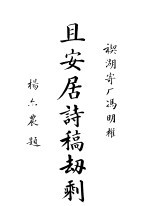 禊湖寄厂馮明權
且安居詩稿劫剩
楊六農題